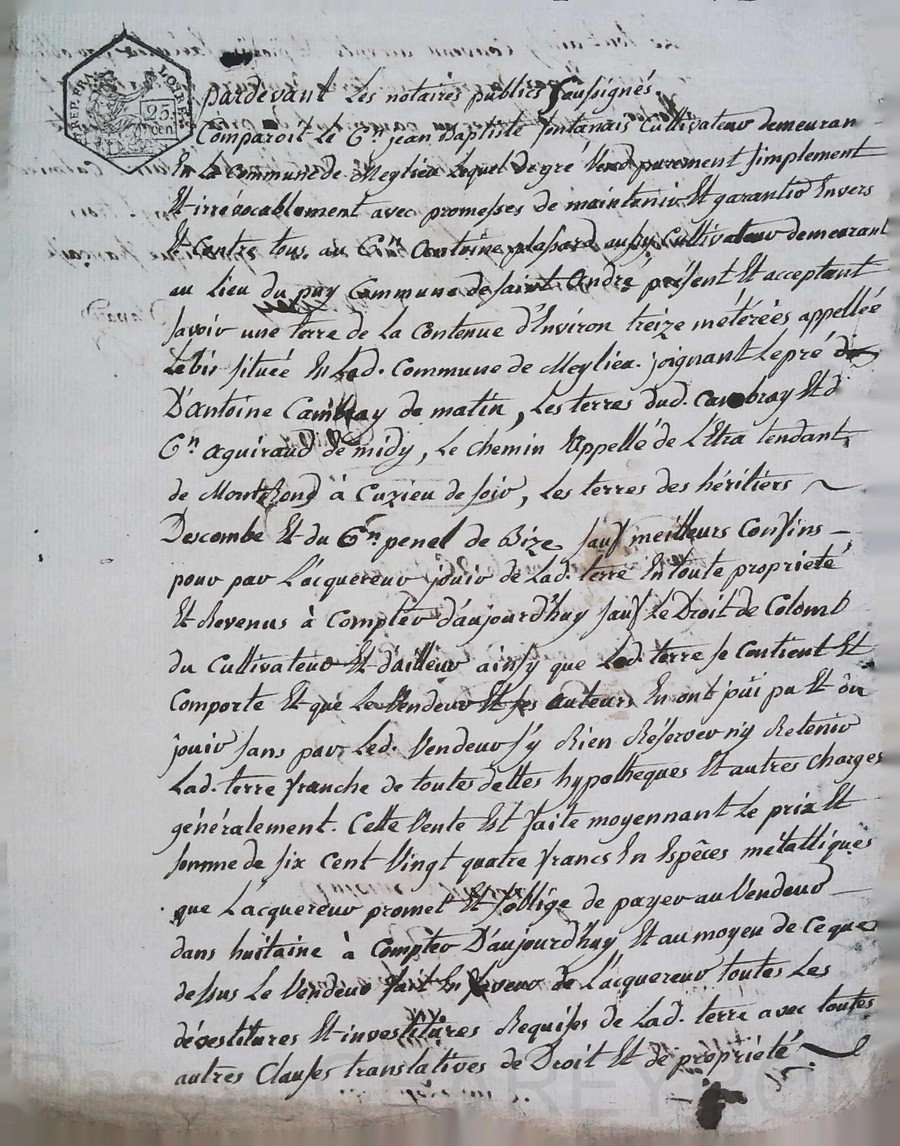 REP. FRA. LOIRE
25
cen.
pardevant Les notaires publics Soussignés.
Comparoit le C.n jean Baptiste fontanais Cultivateur demeuran
En La Commune de Meylieu Lequel de gré Vend purement Simplement
Et irrévocablement avec promesses de maintenir Et garantir Envers
Et Contre tous, au C.en Antoine plasard aussy Cultivateur demeurant
au Lieu du puy Commune de saint André présent Et acceptant
savoir une terre de La Contenue d'Environ treize métérées appellée
située En Lad. Commune de Meylieu. joignant Le pré
D'antoine Cambray de matin, Les terres dud. Cambray Et d
C.n aguiraud de midy, Le chemin Appellé de L'Etra tendant
de Montrond à Cuzieu de soir, Les terres des héritiers
Descombe Et du C.n penel de Bize, sauf meilleurs Confins
pour par L'acquereur jouir de Lad. terre En toute proprieté
Et Revenus à Compter d'aujourd'huy sauf Le Droit de Colomb
du Cultivateur Et d'ailleur ainsy que Lad. terre se Contient Et
Comporte Et que Le Vendeur Et ses auteurs En ont joüi pu Et dû
jouir sans par Led. Vendeur s'y Rien Réserver n'y Retenir
Lad. terre franche de toutes dettes hypotheques Et autres Charges
généralement. Cette Vente Est faite moyennant Le prix Et
somme de six Cent Vingt quatre francs En Espèces métalliques
que L'acquereur promet Et s'oblige de payer au Vendeur
dans huitaine à Compter D'aujourd'huy, Et au moyen de Ce que
dessus Le Vendeur fait En faveur de L'acquereur toutes Les
dévestitures Et investitures Requises de Lad. terre avec toutes
autres Clauses translatives de Droit Et de proprieté